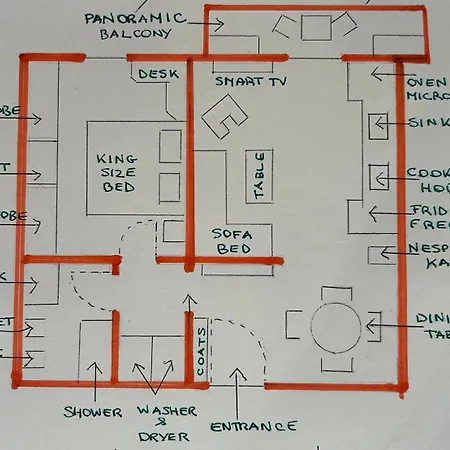 PANORAMIC
BALCONY
DESK
SMART TV
OVEN
MICRO
SINK
KING
SIZE
BED
TABLE
COOK
HO
FRID
FREE
SOFA
BED
NESP
KA
COATS
DINI
TAB
SHOWER
WASHER
&
DRYER
ENTRANCE
OBE
T
OBE
K
ET